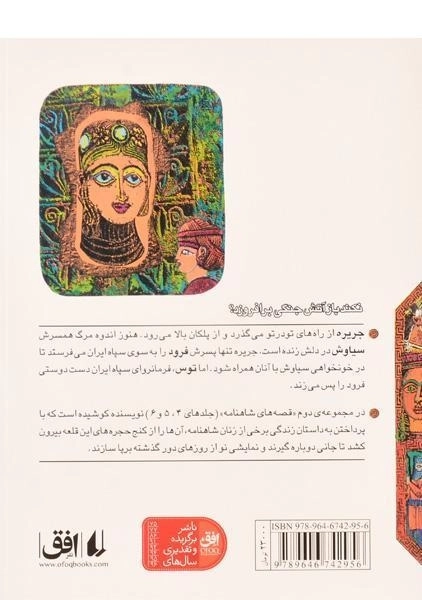 نکند باز آتش جنگی برافروزد؟
جریره از راه‌های تودرتو می‌گذرد و از پلکان بالا می‌رود. هنوز اندوه مرگ همسرش
سیاوش در دلش زنده است. جریره تنها پسرش فرود را به سوی سپاه ایران می‌فرستد تا
در خونخواهی سیاوش با آنان همراه شود. اما توس، فرمانروای سپاه ایران دست دوستی
فرود را پس می‌زند.
در مجموعه‌ی دوم «قصه‌های شاهنامه» (جلدهای ۴، ۵ و ۶) نویسنده کوشیده است که با
پرداختن به داستان زندگی برخی از زنان شاهنامه، آن‌ها را از کنج حجره‌های این قلعه بیرون
کشد تا جانی دوباره گیرند و نمایشی نو از روزهای دور گذشته برپا سازند.
افق
www.ofoqbooks.com
ناشر
برگزیده
و تقدیری
سال‌های
افق
OFOQ
۲۳۰۰۰ تومان
ISBN 978-964-6742-95-6
9 789646 742956